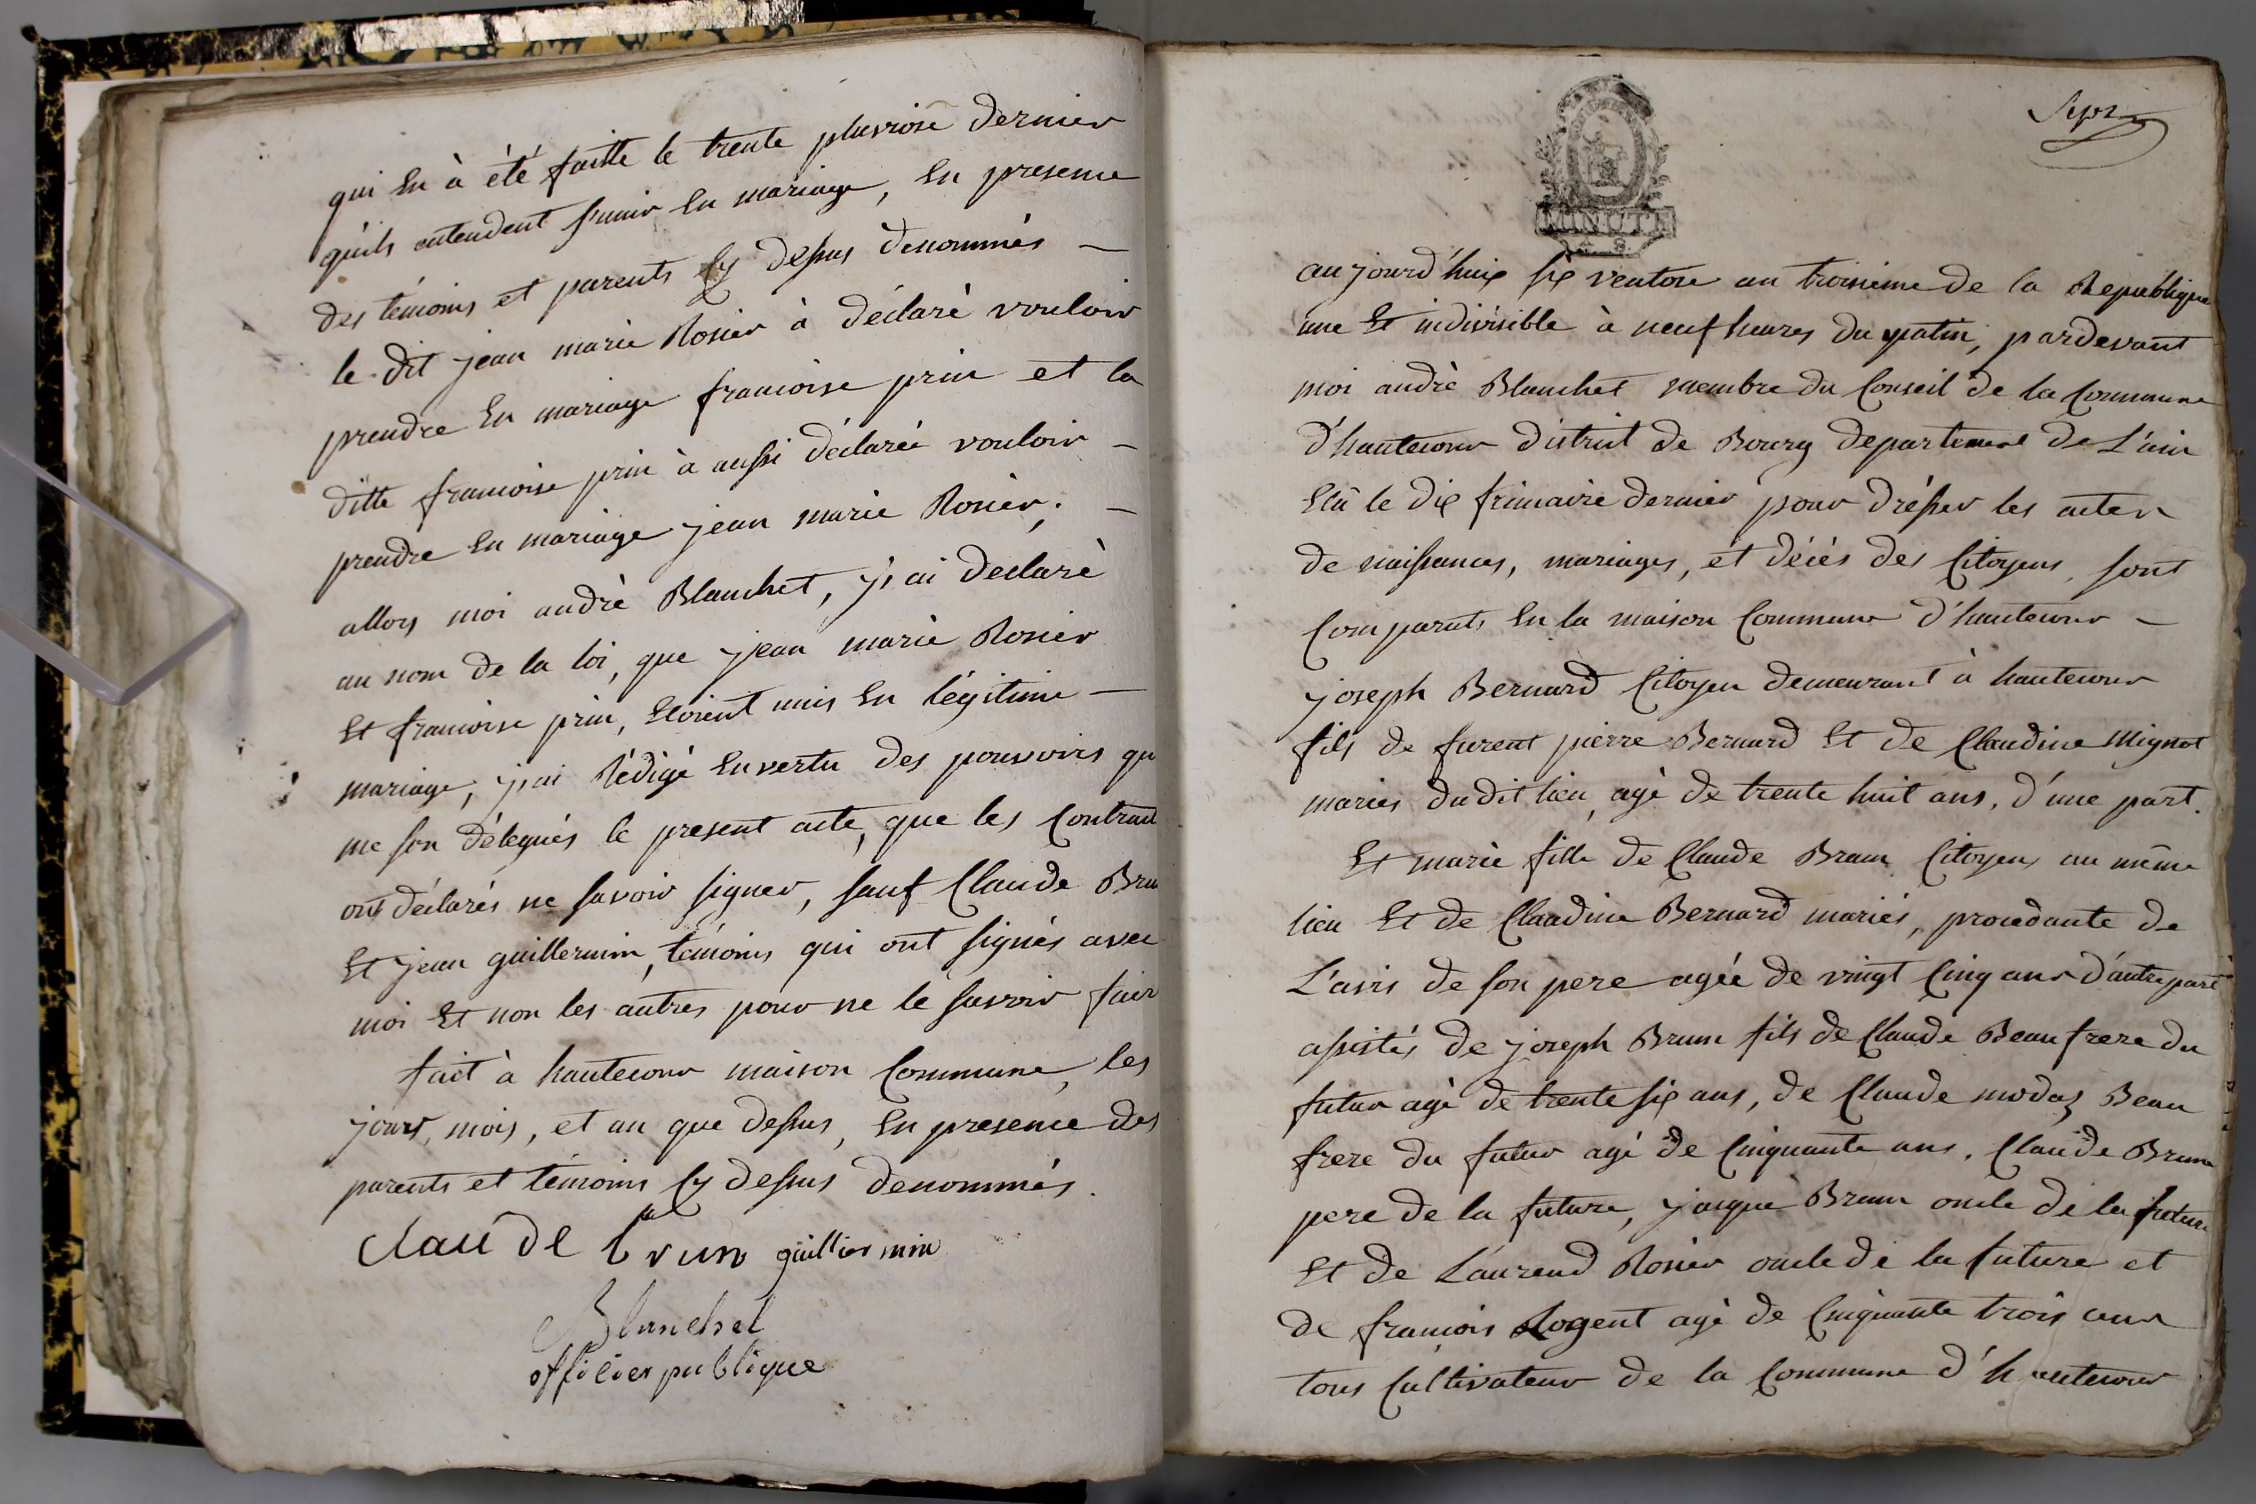 qui En à été faitte le trente pluviose dernier
quils entendent s'unir En mariage, En presence
des témoins et parents Cy dessus denommés –
le dit jean marie Rosier à déclaré vouloir
prendre En mariage francoise prin et la
ditte francoise prin à aussi déclarée vouloir –
prendre En mariage jean marie Rosier; –
allors moi andré Blanchet, j'ai declaré
au nom de la loi, que jean marie Rosier
Et francoise prin, Etoient unis En légitime –
mariage, j'ai Rédigé En vertu des pouvoirs qu
me son délegués le present acte, que les Contract
ont déclarés ne savoir signer, sauf Claude Bru
Et jean guillermin, témoins qui ont signés avec
moi Et non les autres pour ne le savoir fair
fait à hautecour maison Commune, les
jours, mois, et an que dessus, En presence des
parents et témoins Cy dessus denommés.
Claude brun guilliermin
Blanchet
officier publique
Sept
MINUTE
aujourd'huix six ventose an troisieme de la Republique
une Et indivisible à neuf heures du matin, pardevant
moi andré Blanchet membre du Conseil de la Commune
d'hautecour district de Bourg departement de L'ain
Elû le dix frimaire dernier pour drésser les actes
de naissances, mariages, et décés des Citoyens, sont
Comparuts En la maison Commune d'hautecour –
joseph Bernard Citoyen demeurant à hautecour
fils de furent pierre Bernard Et de Claudine Mignot
mariés du dit lieu, agé de trente huit ans, d'une part.
Et marie fille de Claude Brun Citoyens au même
lieu Et de Claudine Bernard mariés, procedante de
L'avis de son pere agée de vingt Cinq ans d'autre part
assistés de joseph Brun fils de Claude Beau frere du
futur agé de trente six ans, de Claude modas Beau
frere du futur agé de Cinquante ans, Claude Brun
pere de la future, jacque Brun oncle de la future
Et de Laurend Rosier oncle de la future et
de francois Rogent agé de Cinquante trois ans
tous Cultivateur de la Commune d'hautecour